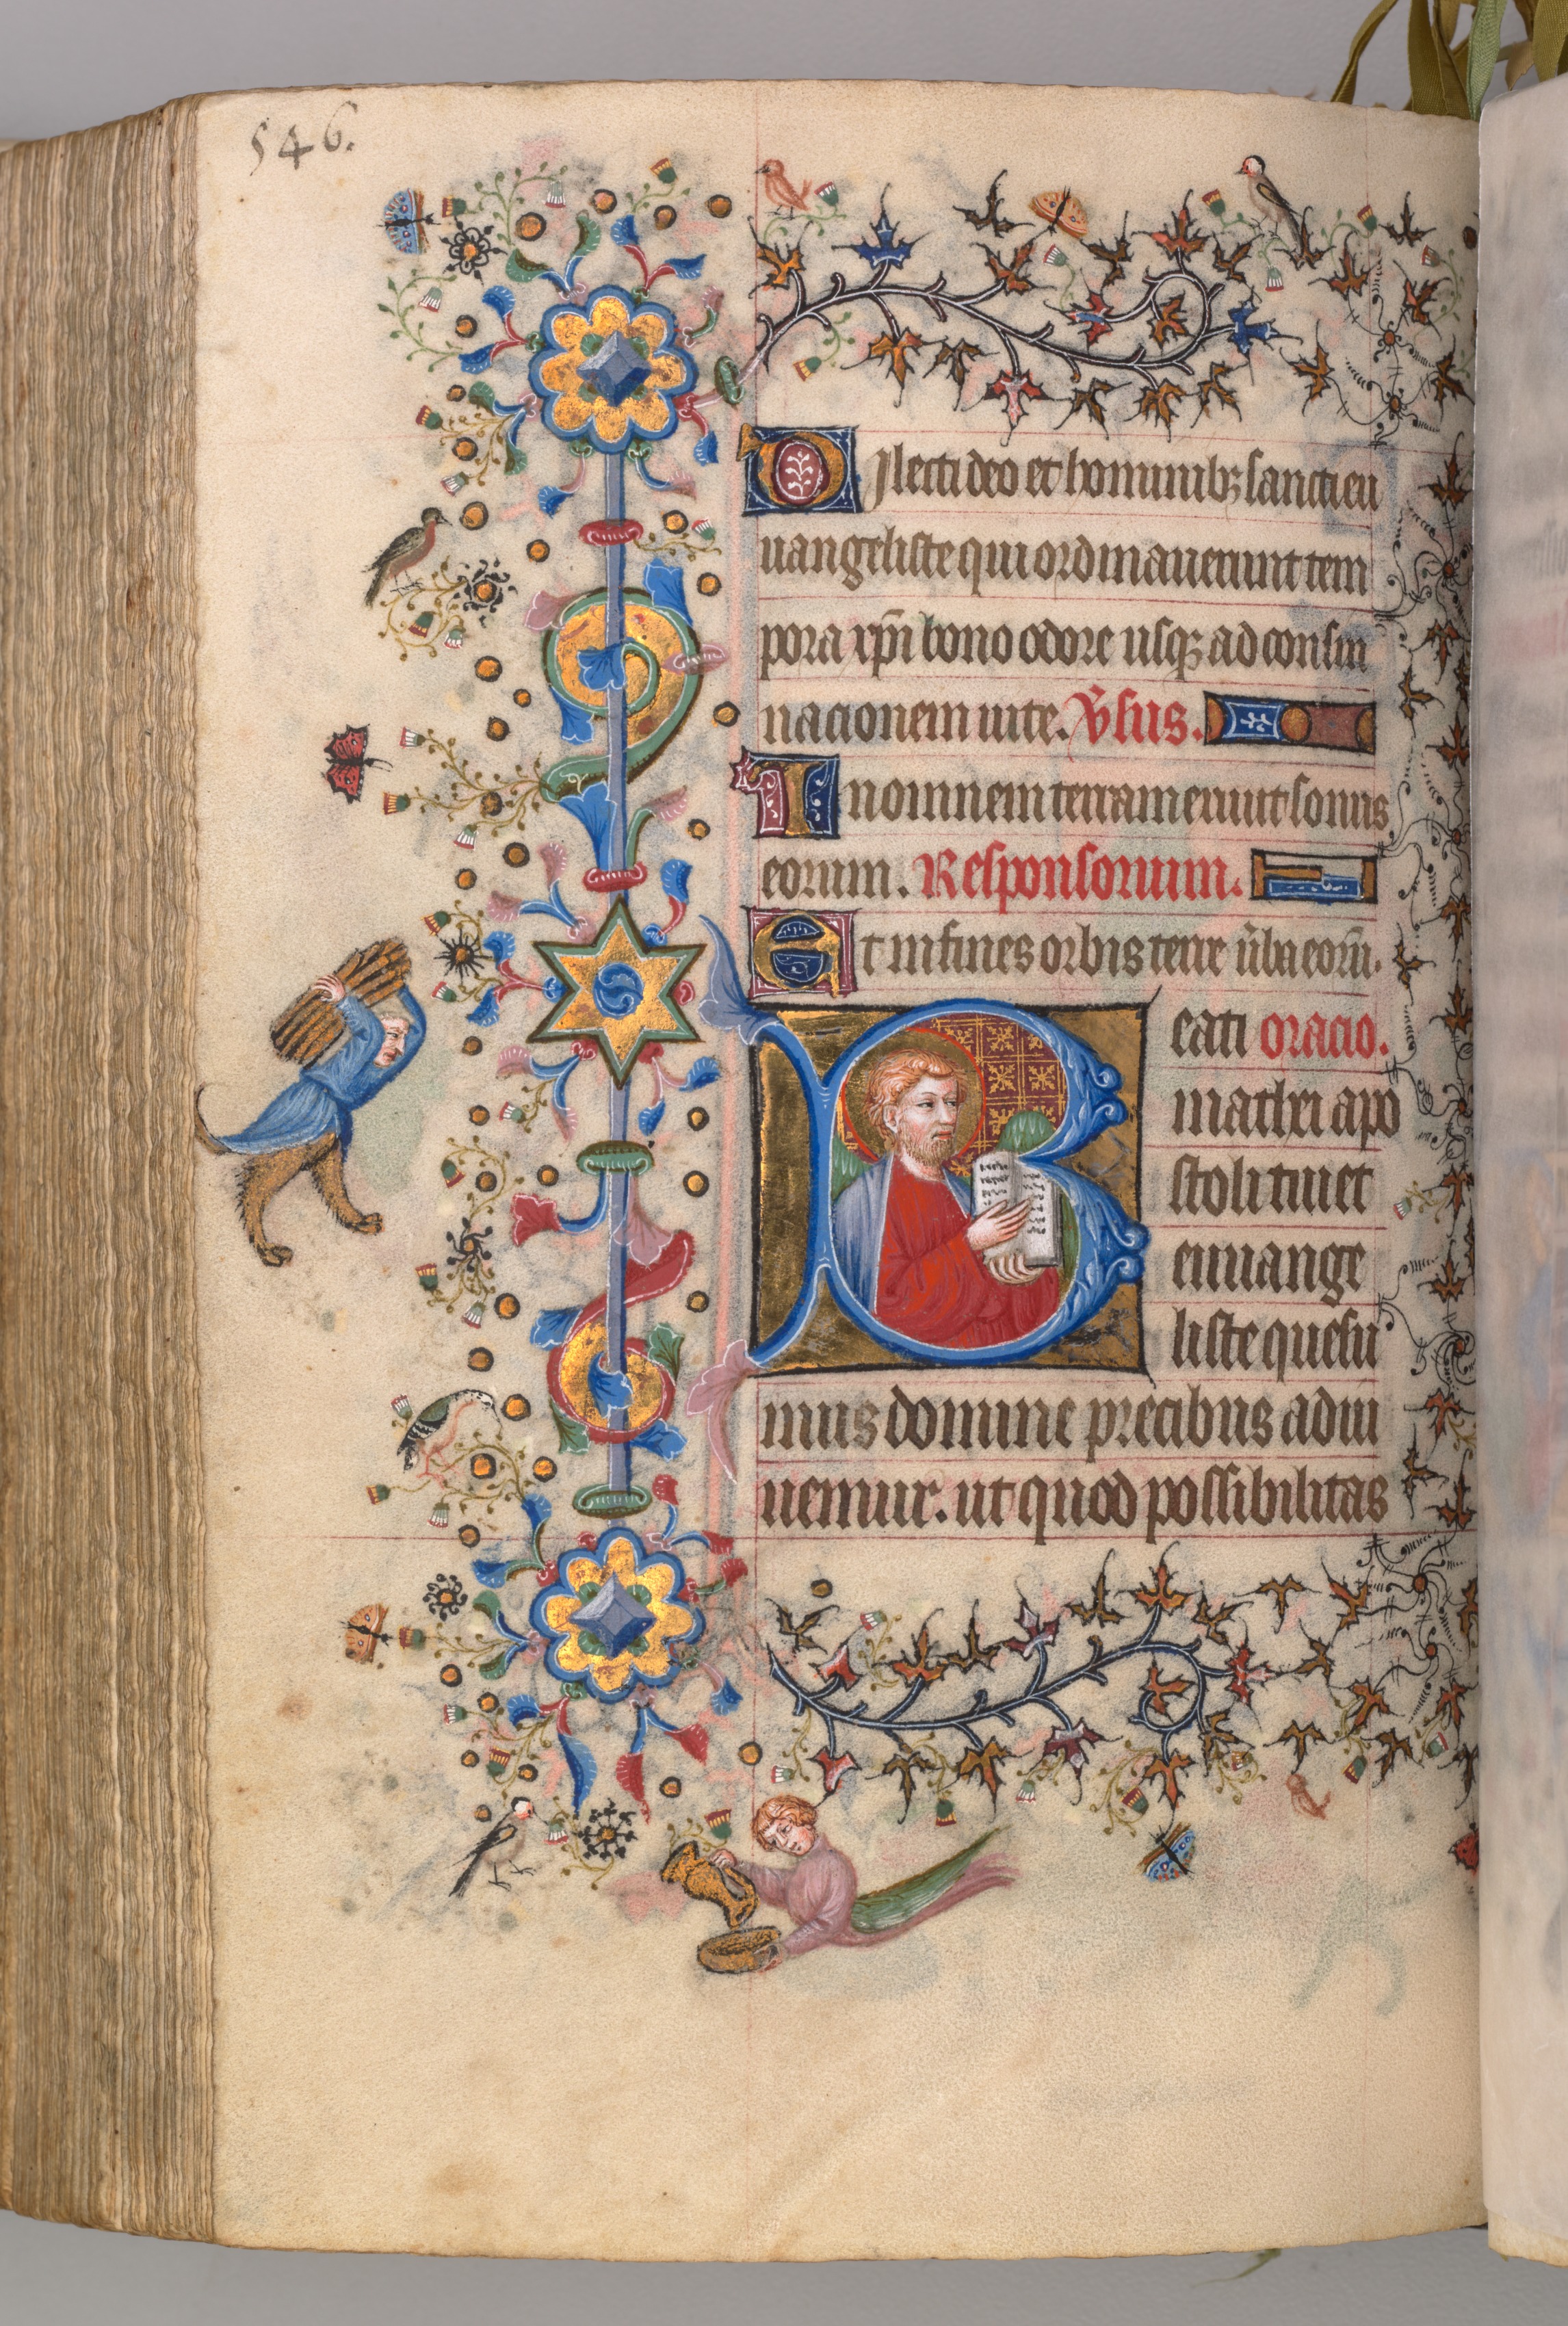 546.
Dilecti deo et hominibꝫ sancti eu
uangeliste qui ordinauerunt tem
pora xp̄i bono odore usqꝫ ad consm
nacionem uite. v̄sus.
In omnem terram exiuit sonus
eorum. Responsorium.
Et in fines orbis terre v̄ba eorū.
Beati oracio.
mathei apo
stoli tui et
euuange
liste quesu
mus domine precibus adiu
uemur. ut quod possibilitas